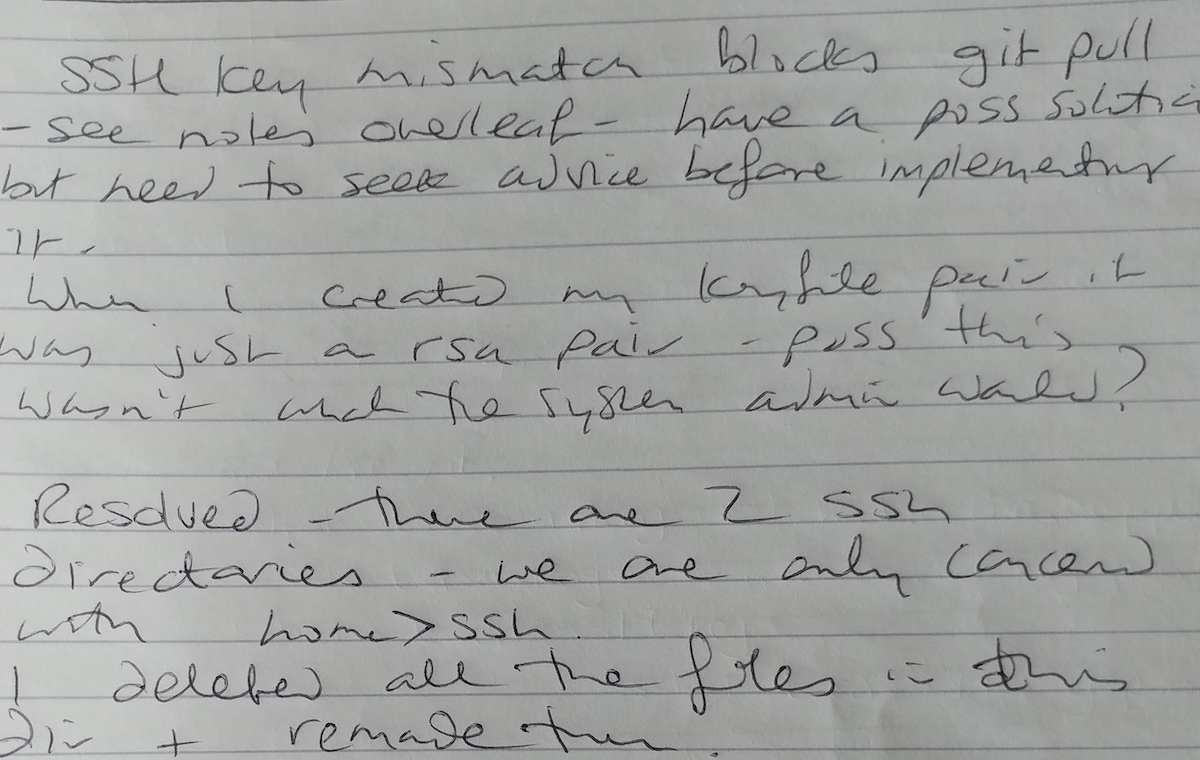 SSH key mismatch blocks git pull
- see notes overleaf - have a poss solutio
but need to seek advice before implementing
it.
When I created my keyfile pair it
was just a rsa pair - poss this
wasn't what the system admin wanted?
Resolved - there are 2 ssh
directories - we are only concerned
with home>ssh.
I deleted all the files in this
dir + remade them.